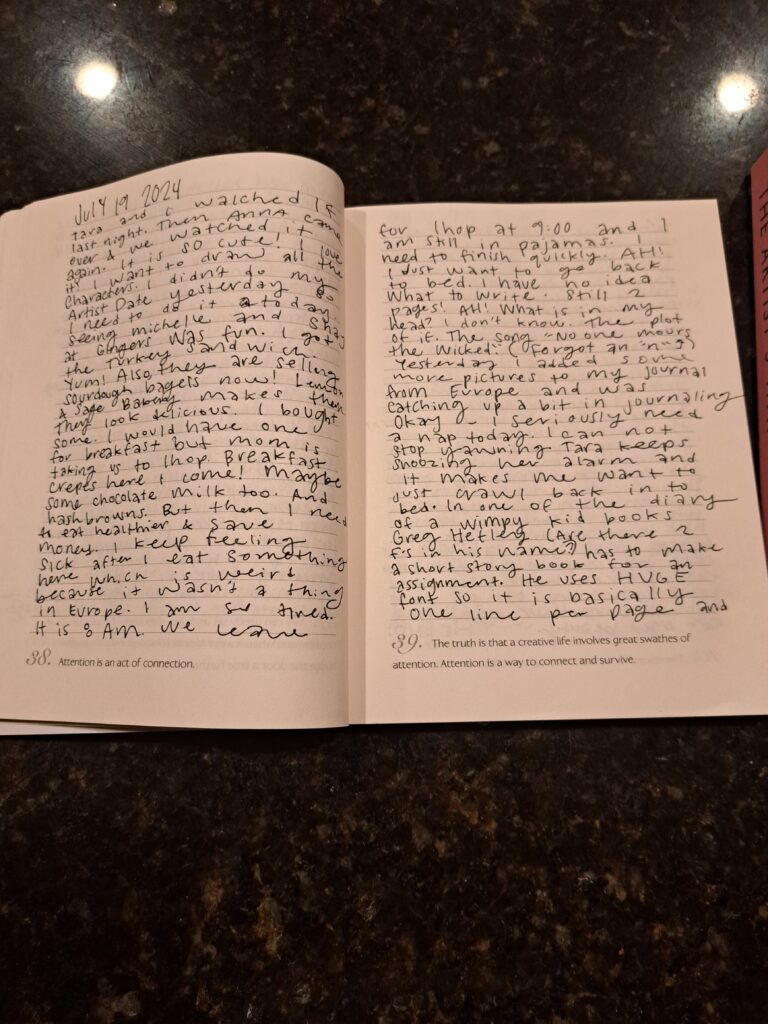 JULY 19 2024
Tara and I watched IF
last night. Then ANNA came
over & we watched it
again. It is SO cute. I love
it! I want to draw all the
characters. I didn't do my
Artist Date yesterday so
I need to do it today.
seeing michelle and Shay
at Gingers was fun. I got
the Turkey sandwich.
Yum! Also, they are selling
sourdough bagels now! Lemon
& Sage makes them
They look delicious. I bought
some. I would have one
for breakfast but mom is
taking us to Ihop. Breakfast
crepes here I come! Maybe
some chocolate milk too. And
hashbrowns. But then I need
to eat healthier & save
money. I keep feeling
sick after I eat something
here which is weird
because it wasn't a thing
in Europe. I am so tired.
It is 8 AM. We leave
38. Attention is an act of connection.
for Ihop at 9:00 and I
am still in pajamas. I
need to finish quickly. AH!
I just want to go back
to bed. I have no idea
what to write. Still 2
pages! AH! What is in my
head? I don't know. The plot
of it. The song "No one mours
the Wicked." (Forgot an "n"?)
Yesterday I added some
more pictures to my journal
from Europe and was
catching up a bit in journaling
Okay - I seriously need
a nap today. I can not
stop yawning. Tara keeps
snoozing her alarm and
it makes me want to
just crawl back in to
bed. In one of the diary
of a wimpy kid books
Greg Hefley (Are there 2
f's in his name?) has to make
a short story book for an
assignment. He uses HUGE
font so it is basically
one line per page and
39. The truth is that a creative life involves great swathes of
attention. Attention is a way to connect and survive.
THE ARTIST'S